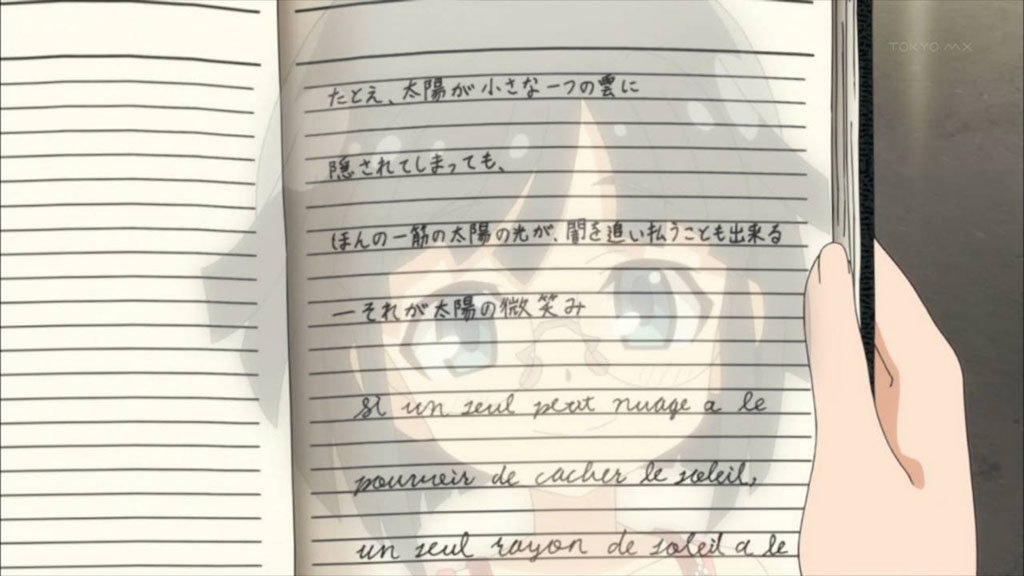 TOKYO MX
たとえ、太陽が小さな一つの雲に
隠されてしまっても、
ほんの一筋の太陽の光が、闇を追い払うことも出来る
—それが太陽の微笑み
si un seul petit nuage a le
pouvoir de cacher le soleil,
un seul rayon de soleil a le